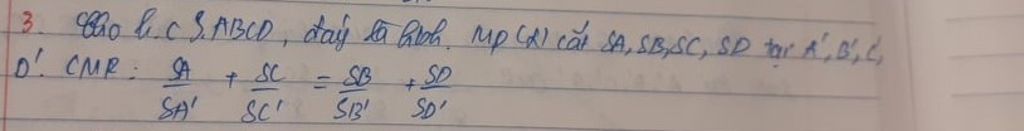 3. Cho h.c S.ABCD, đáy là hbh. Mp (α) cắt SA, SB, SC, SD tại A', B', C',
D'. CMR: SA/SA' + SC/SC' = SB/SB' + SD/SD'